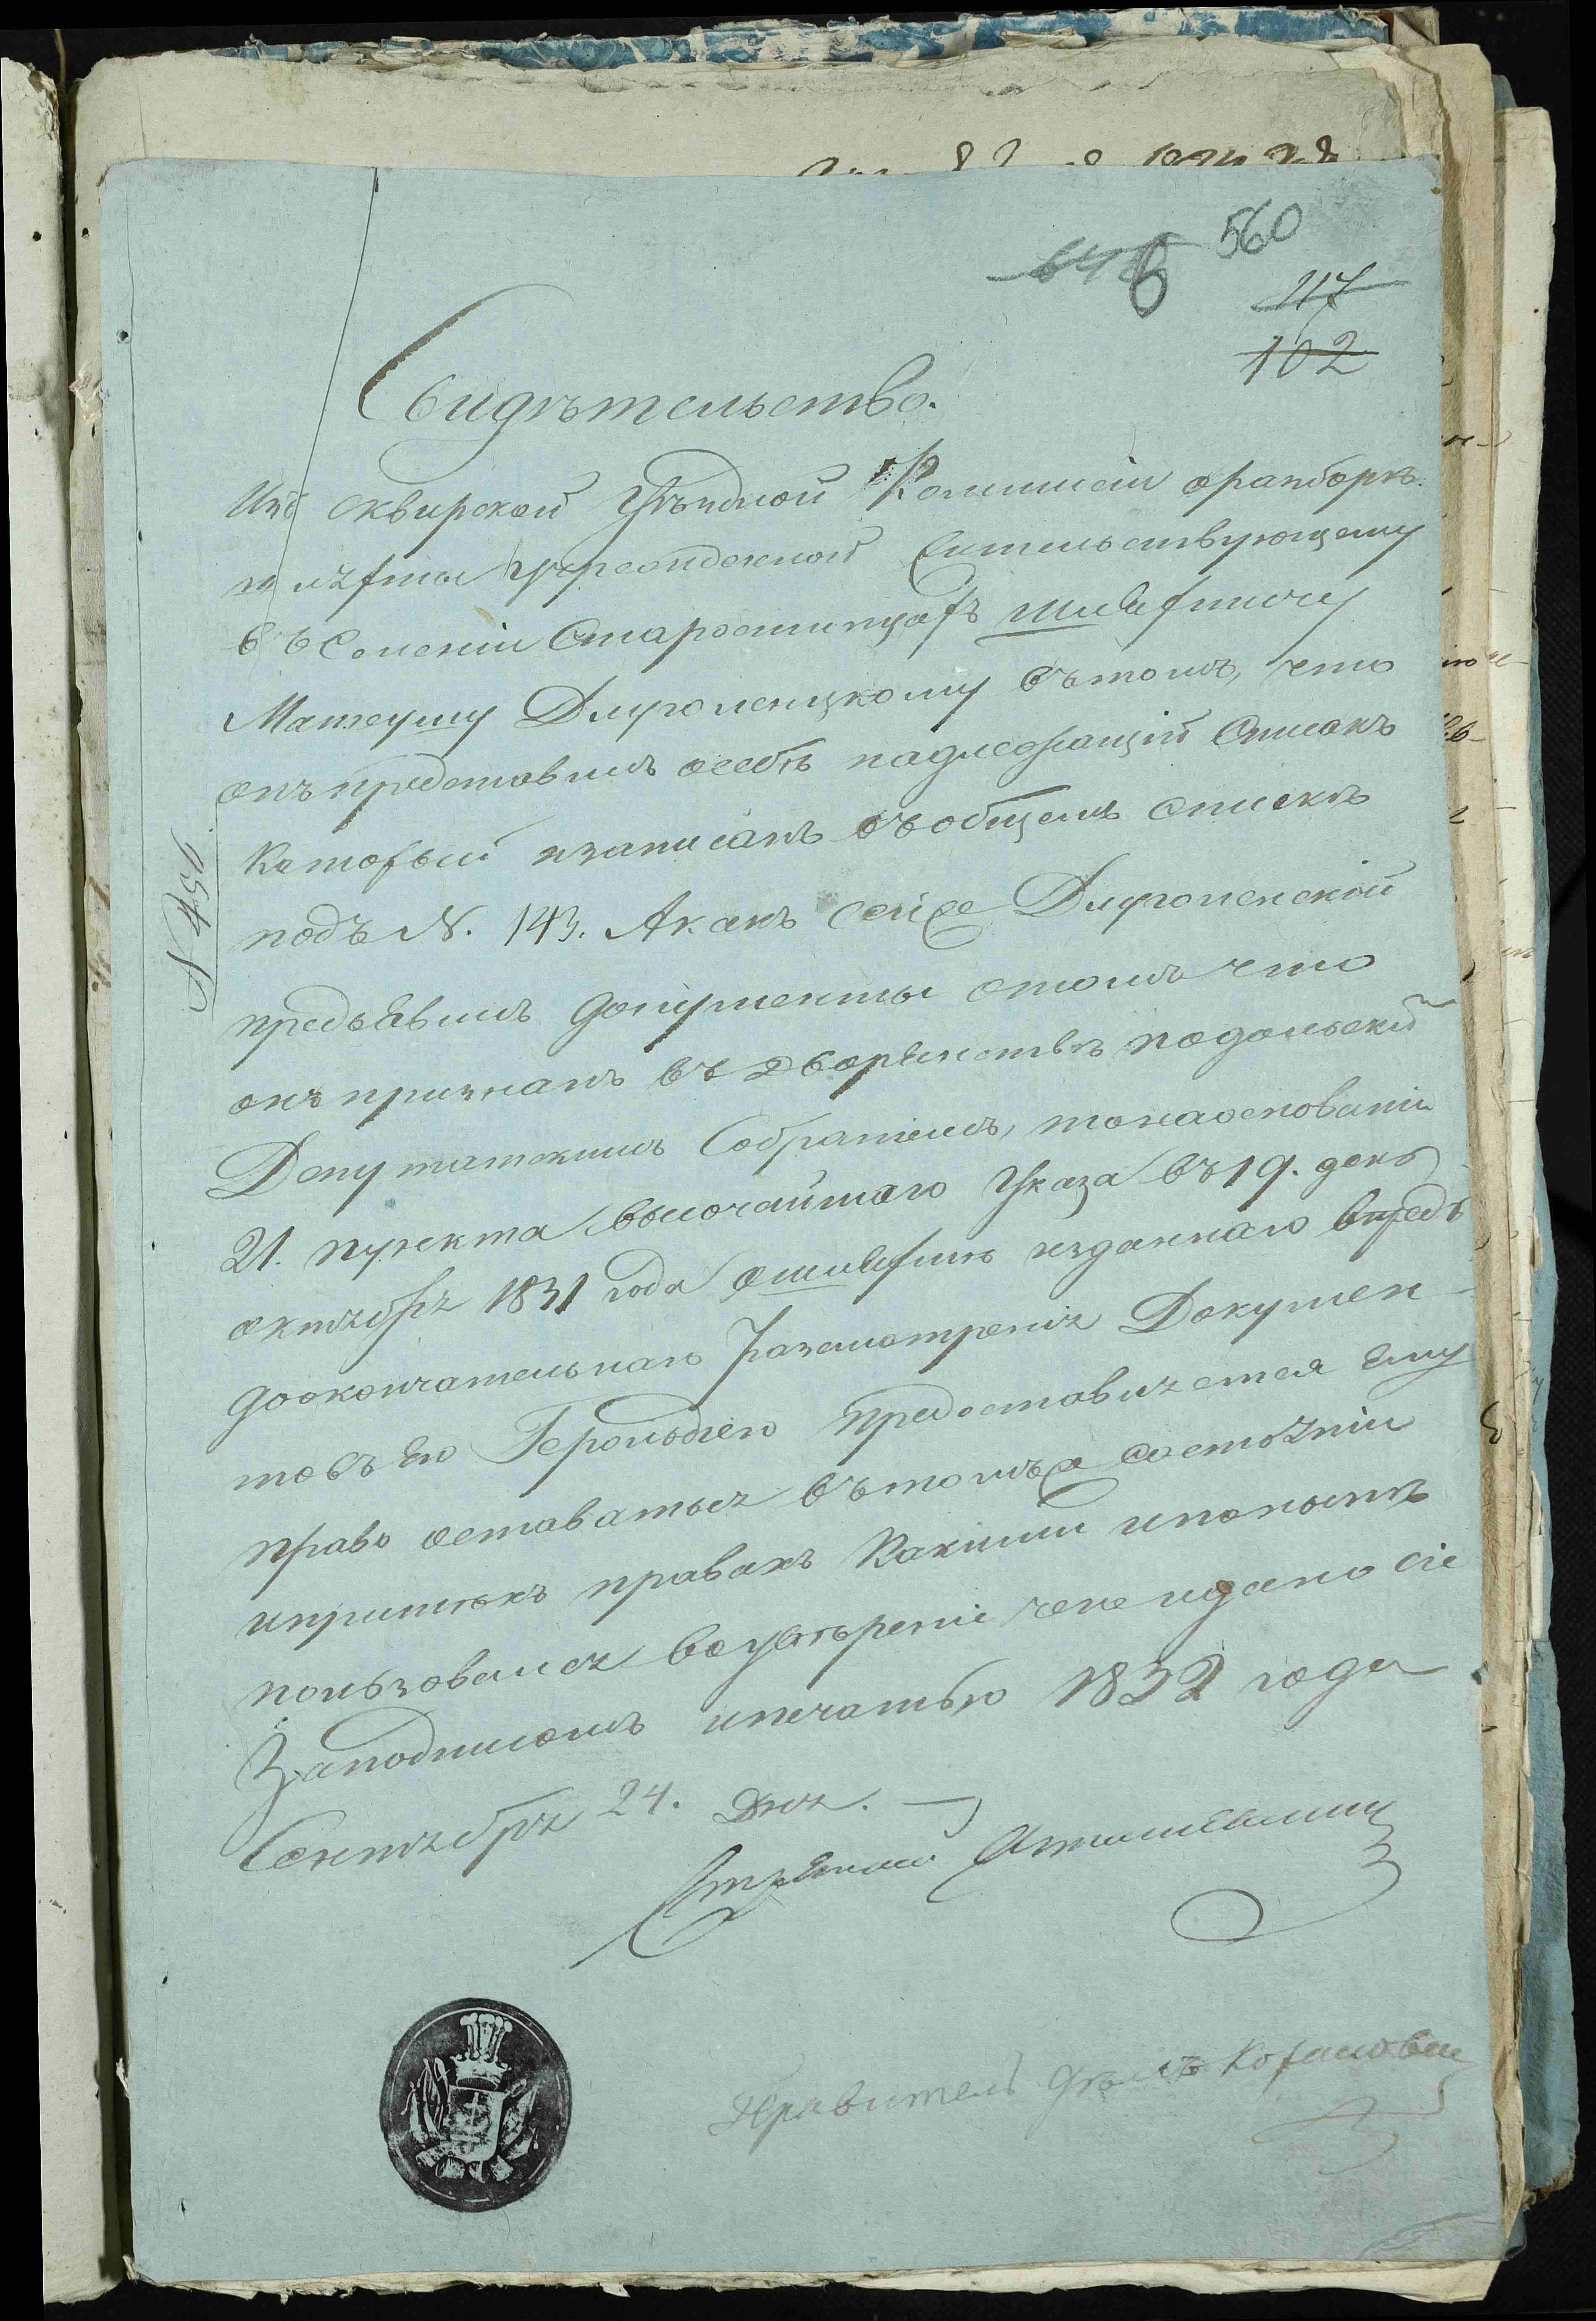 560
117
102
Свидѣтельство.
Изъ Сквирской Уѣздной Коммисіи о разборѣ
шляхты Учрежденной Жительствующему
въ Селеніи Старостинцахъ шляхтичу
Матеушу Длуголенцкому въ томъ, что
онъ представилъ о себѣ надлежащій Списокъ
Который и записанъ въ общемъ спискѣ
подъ N. 143. А какъ сей же Длуголенской
предъявилъ документы о томъ что
онъ признанъ въ Дворянствѣ подольскимъ
Депутатскимъ Собраніемъ, то на основаніи
21. пункта высочайшаго Указа въ 19. день
октября 1831 года о шляхтѣ изданнаго впредь
до окончательнаго Разсмотренія Докумен-
товъ Его Герольдіею предоставляется Ему
право оставаться въ томъ же состояніи
и при тѣхъ правахъ Какими и по нынѣ
пользовался во увѣреніе чего и дано сіе
За подписомъ и печатью 1832 года
Сентября 24. дня.
Правитель дѣлъ
N 754